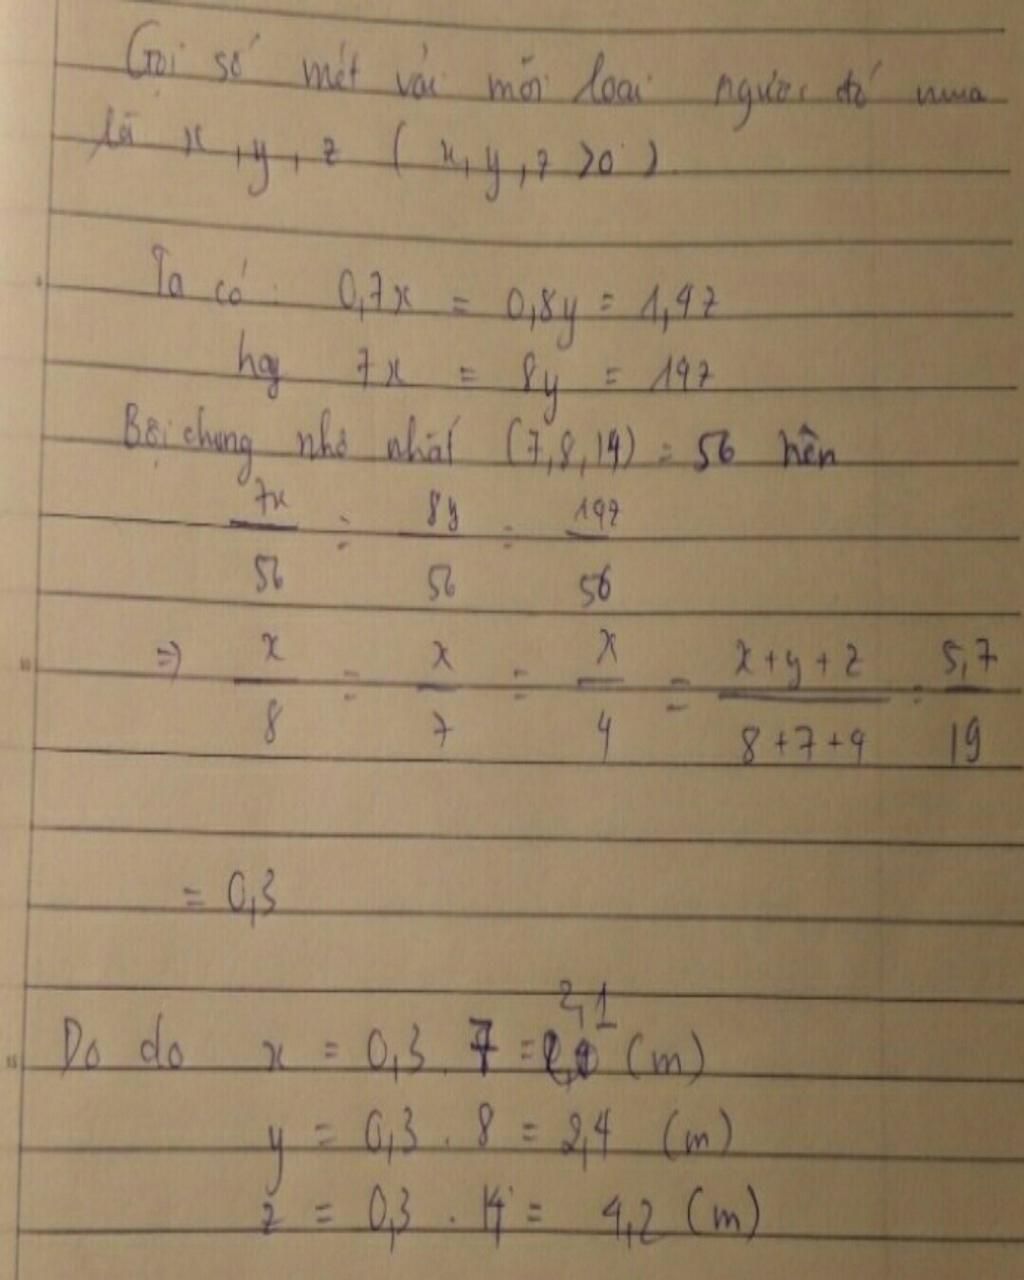 Gọi số mét vải mỗi loại người đó mua
là x, y, z ( x, y, z >0 ).
Ta có: 0,7x = 0,8y = 1,4z
hay 7x = 8y = 14z
Bội chung nhỏ nhất (7,8,14) = 56 nên
7x/56 = 8y/56 = 14z/56
=> x/8 = x/7 = x/4 = x+y+z/8+7+4 = 5,7/19
= 0,3
2,1
Do do x = 0,3 . 7 = (m)
y = 0,3 . 8 = 2,4 (m)
z = 0,3 . 14 = 4,2 (m)